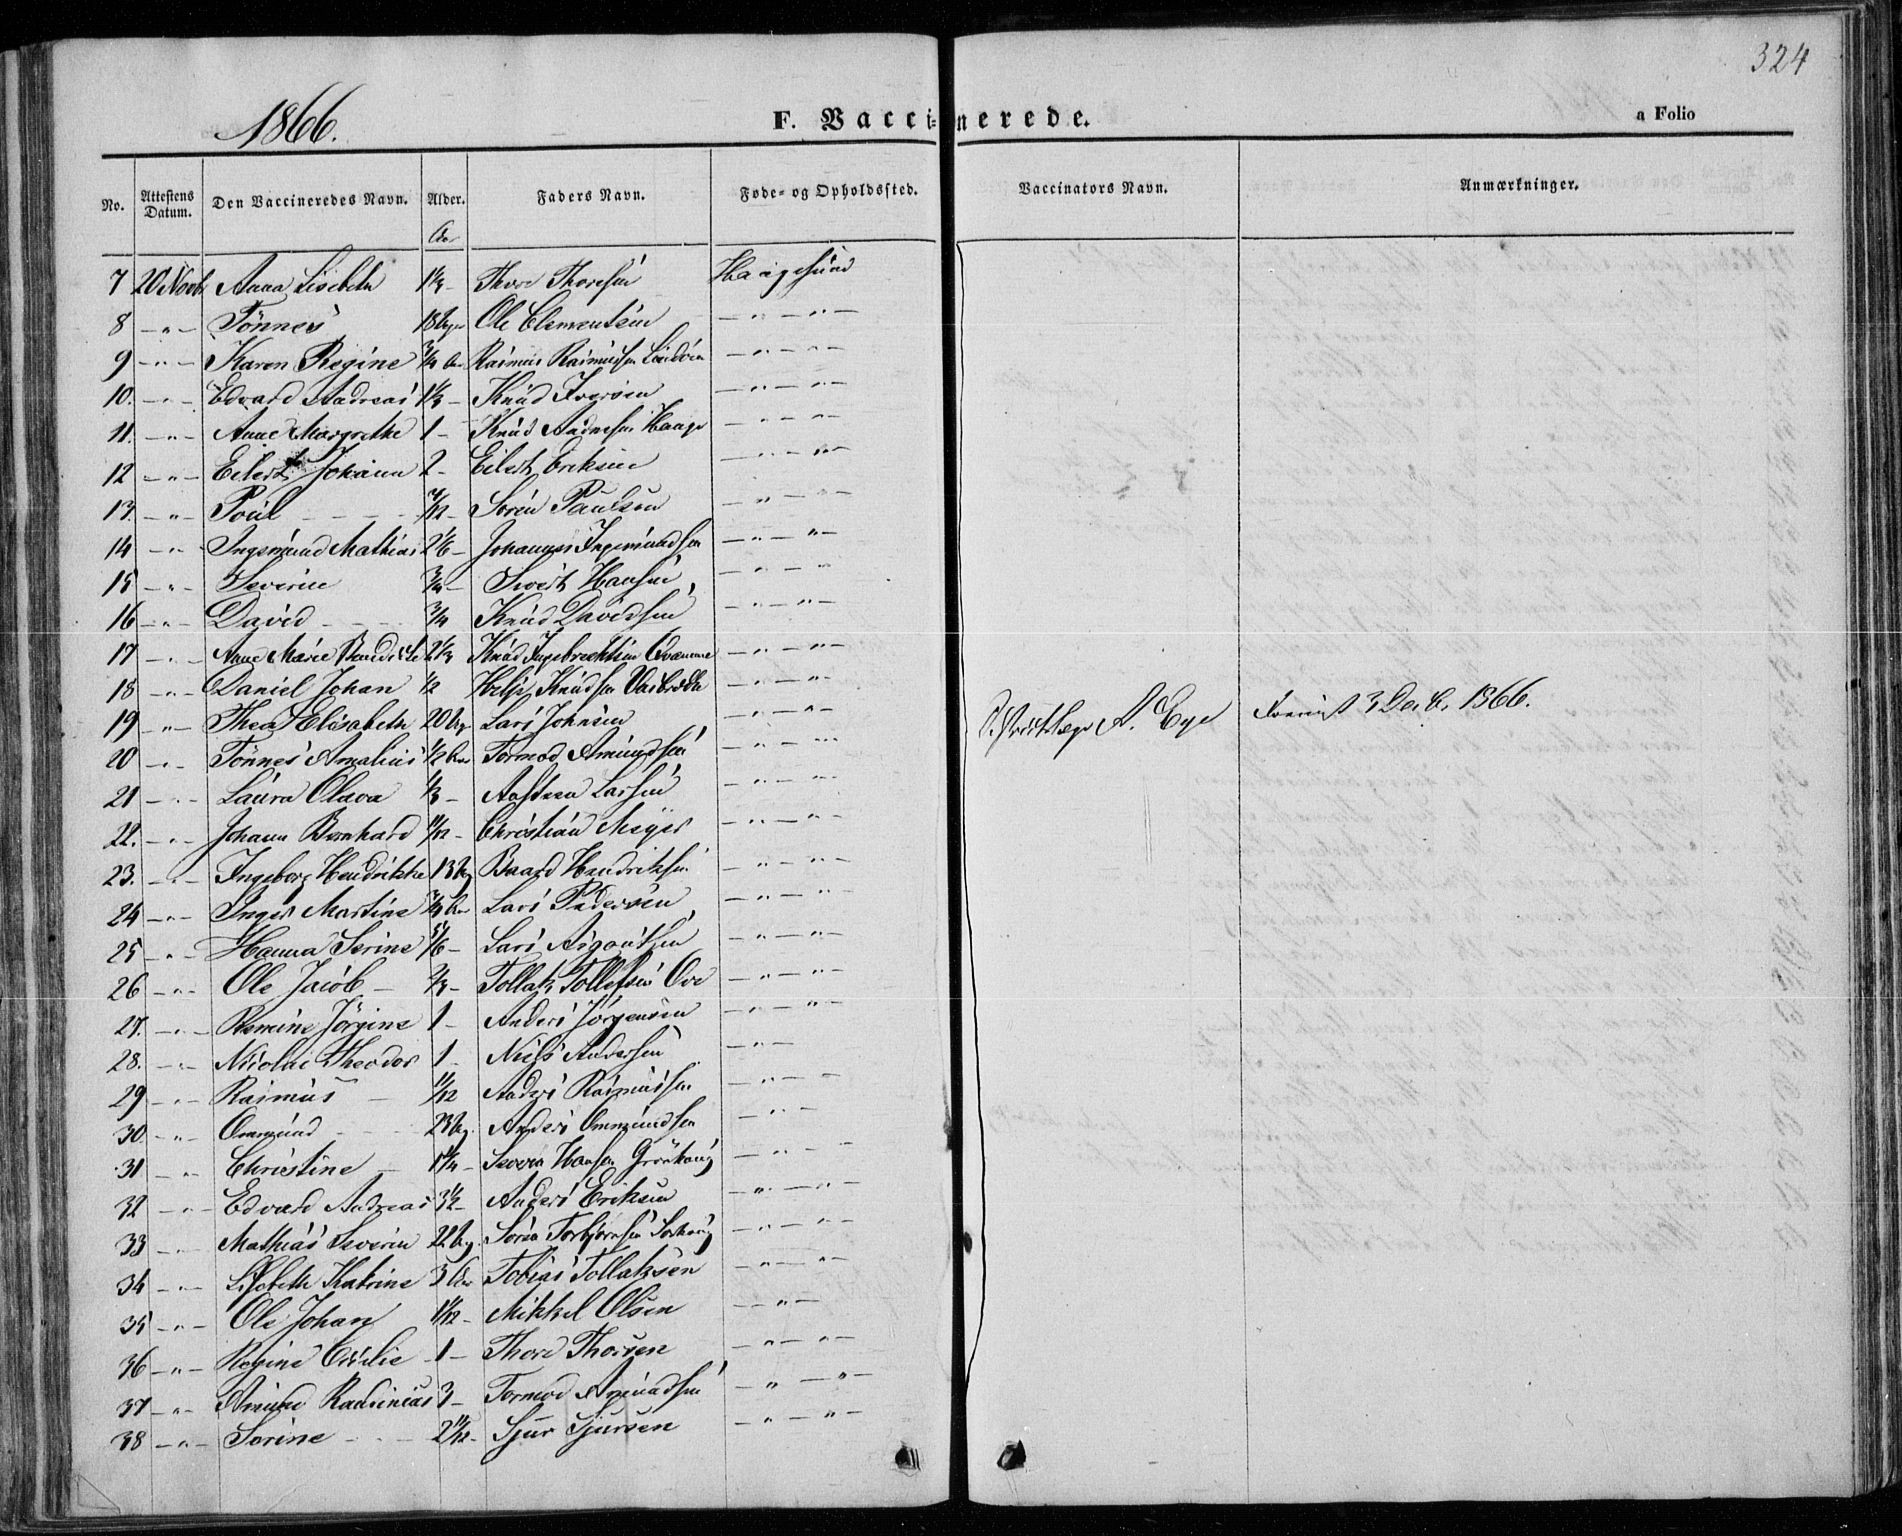 324
1866.
F. Vaccinerede.
a Folio
No. Attestens Datum. Den Vaccineredes Navn. Alder. Faders Navn. Føde- og Opholdssted. Vaccinators Navn. Anmærkninger.
Aar
7 20 Novb Anna Lisebeth 1⅓ - Thore Thoresen Haugesund
8 - " - Tönnes 18 Uger Ole Clementsen - " - " -
9 - " - Karen Regine ¾ Aar Rasmus Rasmussen - " - " -
10. - " - Edvard Andreas 1⅓ - Knud Iversen - " - " -
11. - " - Anne Margrethe 1 - Knud Hauge - " - " -
12 - " - Eilert Johann 2 - Eilert Eriksen - " - " -
13. - " - Poul - - - /12 - Sören Paulsen - " - " -
14 - " - Ingemund Mathias 2⅙ - Johannes Ingemundsen - " - " -
15 - " - Severine ¾ - Sivert Hansen - " - " -
16 - " - David - - - ¾ Knud Davidsen - " - " -
17 - " - Anne Marie 2⅓ Knud Ingebrechtsen - " - " -
18 - " - Daniel Johan ½ Helje Knudsen - " - " -
19 - " - Thea Elisabeth 20 Ug Lars Johnsen - " - " - A. Eye 3 Decb. 1866.
20 - " - Tönnes Amalius ½ Aar Tormod Amundsen - " - " -
21 - " - Laura Olava ⅓ - Larsen - " - " -
22. - " - Johann Bernhard 11/12 - Christian Meyer - " - " -
23. - " - Ingeborg Hendrikke 13 Ug Baard Hendriksen - " - " -
24 - " - Inger Martine Aar Lars Pedersen - " - " -
25 - " - Hanna Serine 5/6 - Lars - " - " -
26 - " - Ole Jacob - ⅔ - Tollak Tollefsen - " - " -
27. - " - Rasmine Jörgine 1 - Anders Jörgensen - " - " -
28. - " - Nicolai Theodor 1 - Niels Andersen - " - " -
29 - " - Rasmus - 11/12 Anders Rasmussen - " - " -
30. - " - Ommund - - - 23 Ug. Anders Ommundsen - " - " -
31 - " - Christine - 1¼ - Severin Hansen - " - " -
32 - " - Edvard Andreas 3½ - Anders Eriksen - " - " -
33 - " - Mathias Severin 22 Ug. Sören Torbjörnsen - " - " -
34 - " - Lisebeth Katrine 3 Aar Tobias Tollaksen - " - " -
35 - " - Ole Johan 1 /12 - Mikkel Olsen - " - " -
36 - " - Regine 1 - Thore Thorsen - " - " -
37 - " - Amund 3 - Tormod Amundsen - " - " -
38 - " - Sorine - - - 2 11/12 - Sjur Sjursen - " - " -